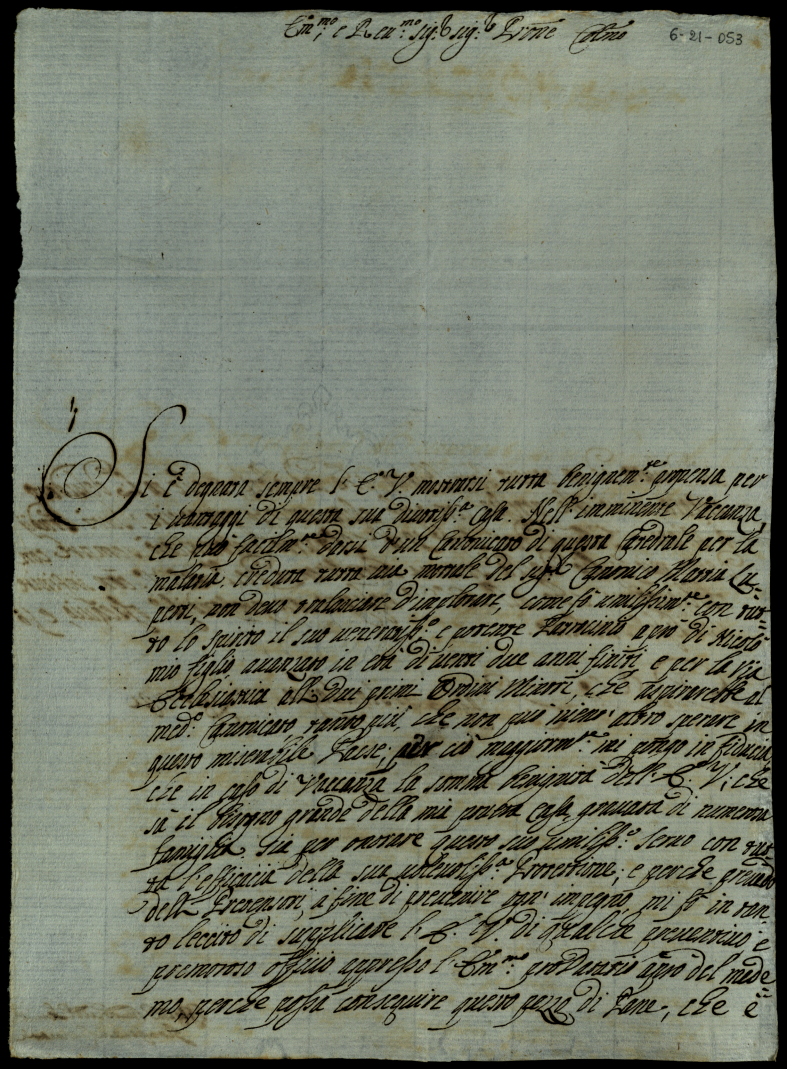 Em.mo e Rev.mo sig.r sig.r Prōne Colmo
6-21-053
Si è degnata sempre l'E. V. mostrarsi tutta benignam.te propensa per
i vantaggi di questa sua divotiss.a Casa. Nell'imminente Vacanza,
che può facilm.te darsi d'un Canonicato di questa Catedrale per la
malatia creduta tutta via mortale del sig.r Canonico Mattia Lu=
peri, non devo tralasciare d'implorare, come fò umilissim.te con tut=
to lo spirito il suo veneratiss.o e potente Patrocinio a prò di Nicolò
mio figlio avanzato in età di venti due anni finiti, e per la via
Ecclesiastica alli due primi Ordini Minori, che aspirarebbe al
med.o Canonicato, tanto più, che non può niun'altro sperare in
questo miserabile Paese; per ciò maggiorm.te mi pongo in fiducia,
che in caso di Vaccanza la somma benignità dell'E. V., che
sà il bisogno grande della mia povera Casa, gravata di numerosa
famiglia sia per onorare questo suo umiliss.o servo con tut=
ta l'efficacia della sua valevoliss.a Protettione; e perche
delli Pretensori, a fine di prevenire ogn'impegno, mi fò in tan=
to leccito di supplicare l'E. V. di qualche preventivo, e
premoroso officio appresso l'Em.mo proDatario a prò del mede=
mo, perche possa conseguire questo pezzo di Pane, che è